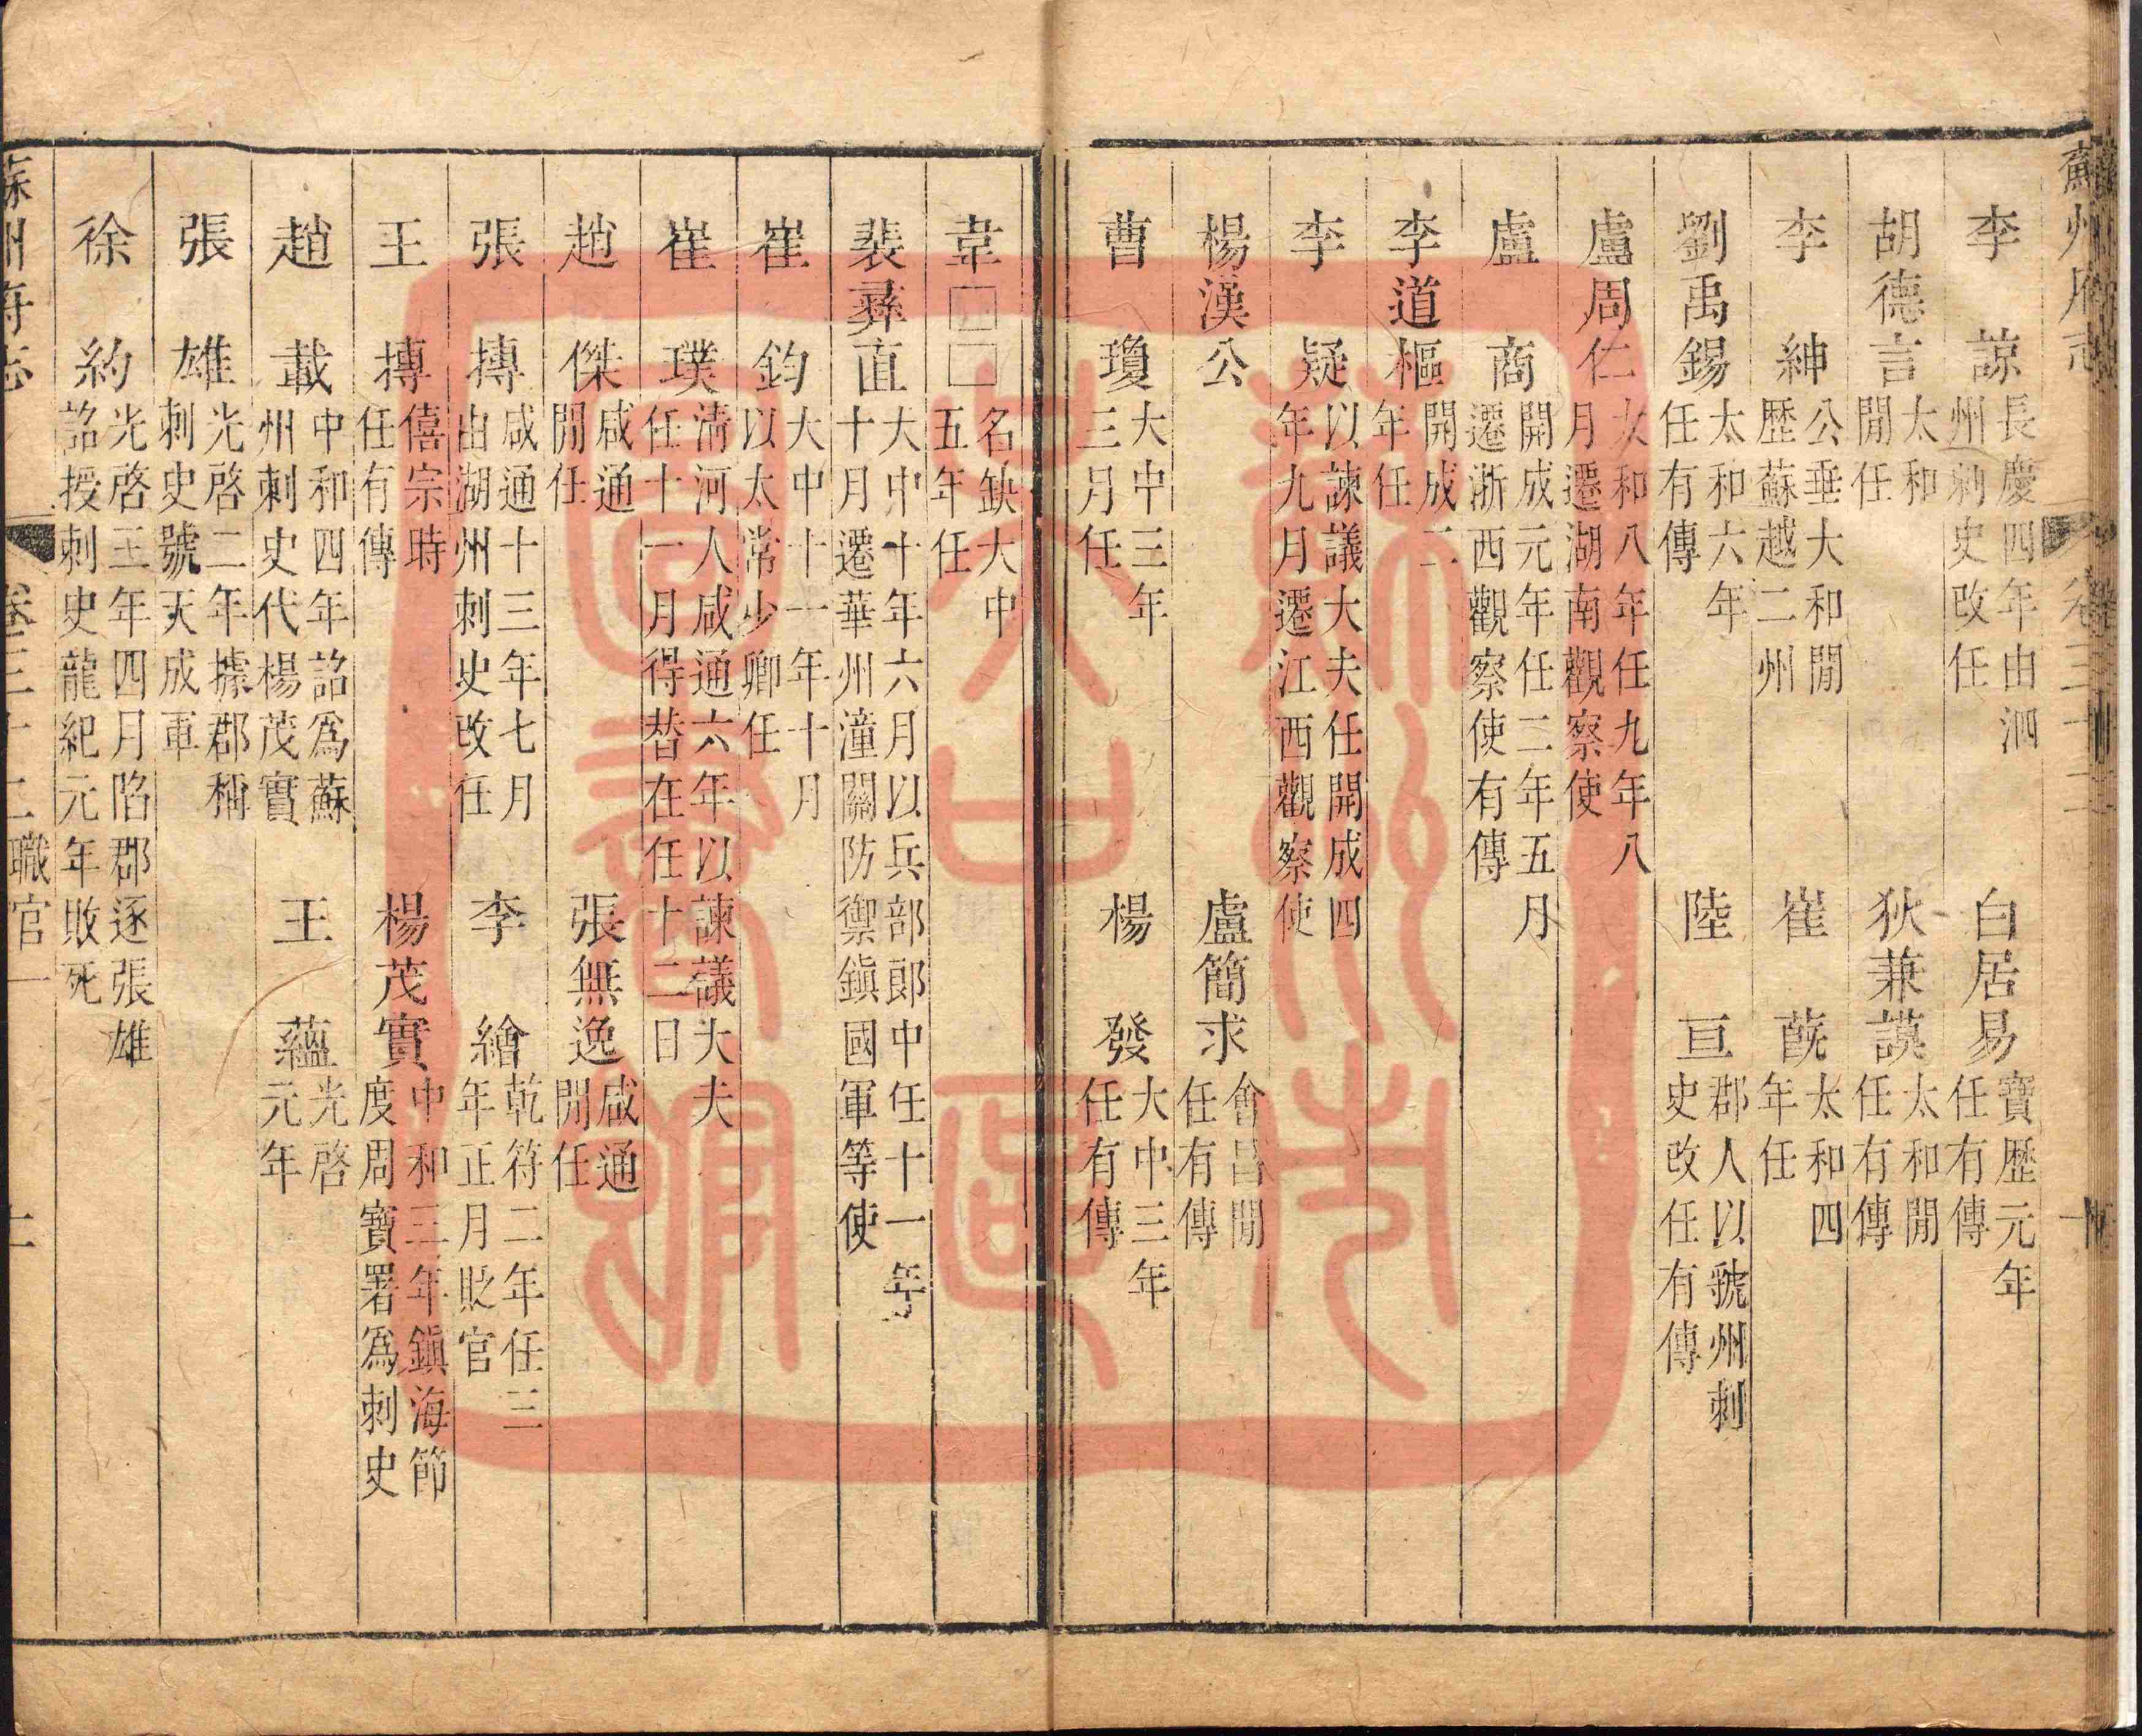 李　諒長慶四年由泗州刺史改任　白居易寶歷元年任有傳
胡德言太和閒任　狄兼謨太和閒任有傳
李　紳公垂大和閒歷蘇越二州　崔　蔇太和四年任
劉禹錫太和六年任有傳　陸　亘郡人以虢州刺史改任有傳
盧周仁大和八年任九年八月遷湖南觀察使
盧　商開成元年任二年五月遷浙西觀察使有傳
李道樞開成二年任
李　疑以諫議大夫任開成四年九月遷江西觀察使
楊漢公　盧簡求會昌閒任有傳
曹　瓊大中三年三月任　楊　發大中三年任有傳
韋□□名缺大中五年任
裴彞直大中十年六月以兵部郎中任十一年十月遷華州潼關防禦鎮國軍等使
崔　鈞大中十一年十月以太常少卿任
崔　璞清河人咸通六年以諫議大夫任十一月得替在任十二日
趙　傑咸通閒任　張無逸咸通閒任
張　摶咸通十三年七月由湖州刺史改任　李　繪乾符二年任三年正月貶官
王　摶僖宗時任有傳　楊茂實中和三年鎮海節度周寶署爲刺史
趙　載中和四年詔爲蘇州刺史代楊茂實　王　蘊光啓元年
張　雄光啓二年據郡稱刺史號天成軍
徐　約光啓三年四月陷郡逐張雄詔授刺史龍紀元年敗死
蘇州府志　卷三十二職官一